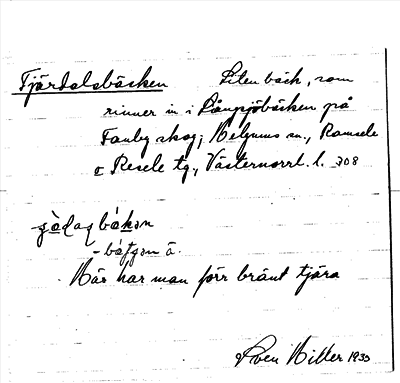 Tjärdalsbäcken Liten bäck, som
rinner in i Långsjöbäcken på
Tanby skog; Helgums sn., Ramsele
o Resele tg., Västernorrl. l. 308
-
Här har man förr bränt tjära
Sven Hiller 1933